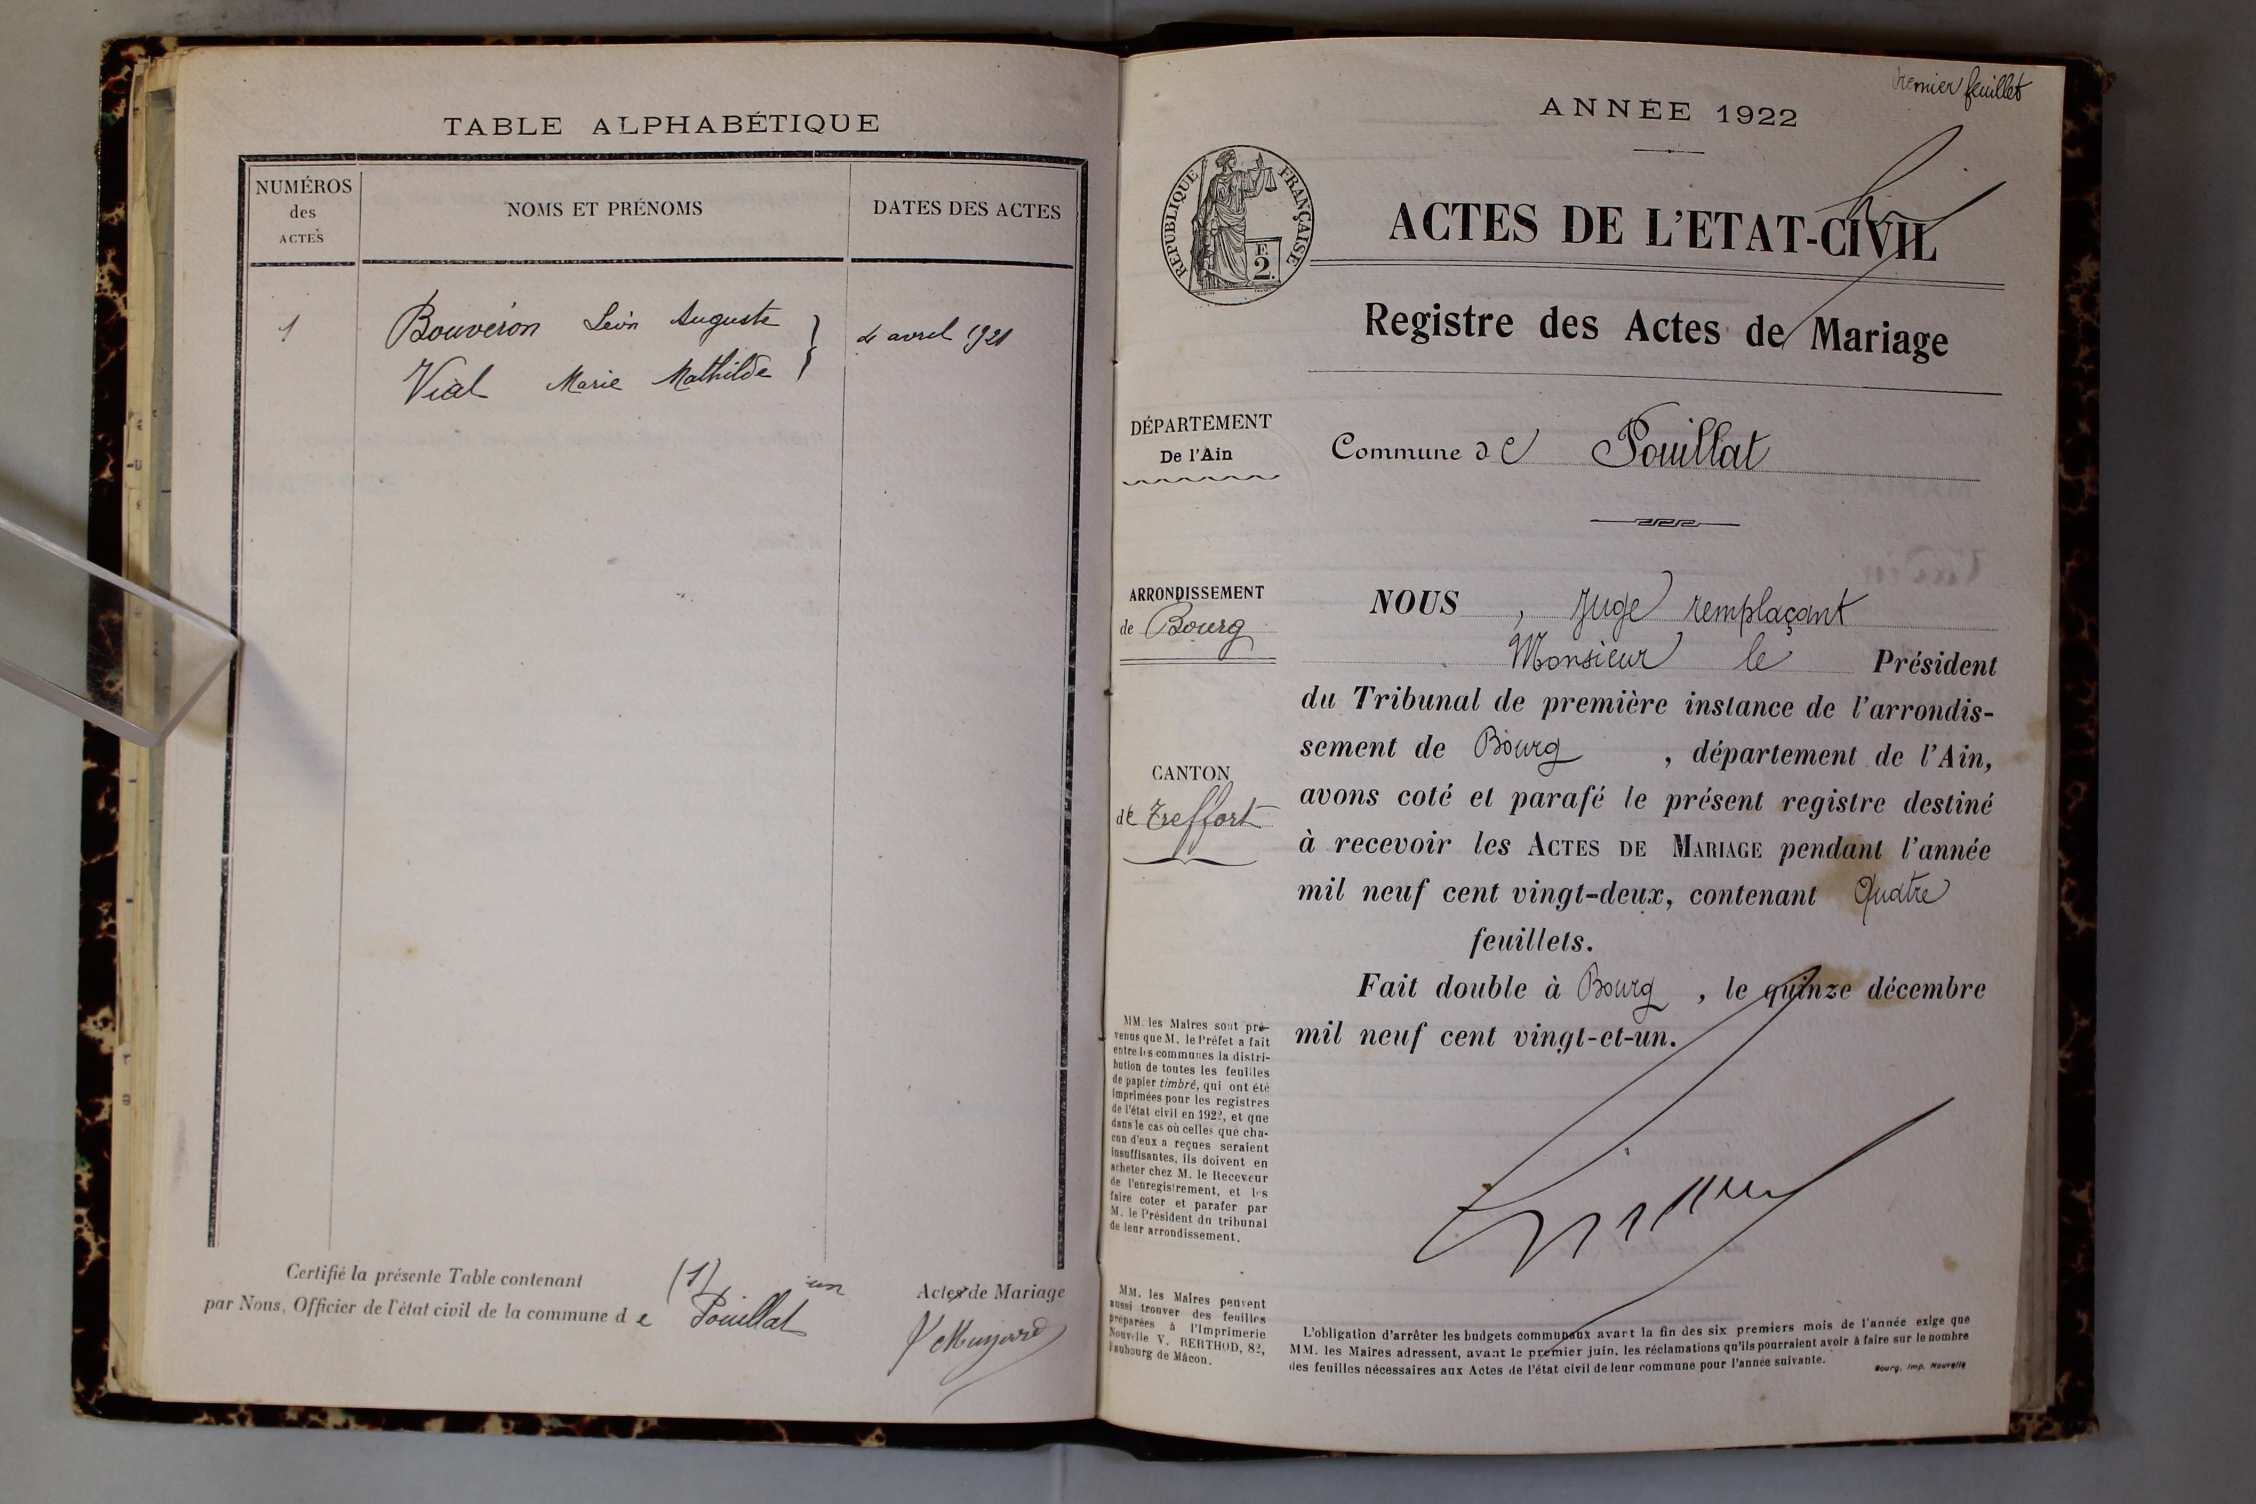 TABLE ALPHABÉTIQUE
NUMÉROS
des
ACTES
NOMS ET PRÉNOMS
DATES DES ACTES
1
Bouveron Léon Auguste
Vial Marie Mathilde
4 avril 1921
Certifié la présente Table contenant (1) un Actes de Mariage
par Nous, Officier de l'état civil de la commune de Pouillat
Premier feuillet
ANNÉE 1922
RÉPUBLIQUE FRANÇAISE
F.
2.
ACTES DE L'ETAT-CIVIL
Registre des Actes de Mariage
DÉPARTEMENT
De l'Ain
Commune de Pouillat
ARRONDISSEMENT
de Bourg
CANTON
de Treffort
NOUS, Juge remplaçant
Monsieur le Président
du Tribunal de première instance de l'arrondis-
sement de Bourg, département de l'Ain,
avons coté et parafé le présent registre destiné
à recevoir les ACTES DE MARIAGE pendant l'année
mil neuf cent vingt-deux, contenant Quatre
feuillets.
Fait double à Bourg, le quinze décembre
mil neuf cent vingt-et-un.
MM. les Maires sont pré-
venus que M. le Préfet a fait
entre les communes la distri-
bution de toutes les feuilles
de papier timbré, qui ont été
imprimées pour les registres
de l'état civil en 1922, et que
dans le cas où celles que cha-
cun d'eux a reçues seraient
insuffisantes, ils doivent en
acheter chez M. le Receveur
de l'enregistrement, et les
faire coter et parafer par
M. le Président du tribunal
de leur arrondissement.
MM. les Maires peuvent
aussi trouver des feuilles
préparées à l'Imprimerie
Nouvelle V. BERTHOD, 82,
Faubourg de Mâcon.
L'obligation d'arrêter les budgets communaux avant la fin des six premiers mois de l'année exige que
MM. les Maires adressent, avant le premier juin, les réclamations qu'ils pourraient avoir à faire sur le nombre
des feuilles nécessaires aux Actes de l'état civil de leur commune pour l'année suivante.
Bourg, Imp. Nouvelle